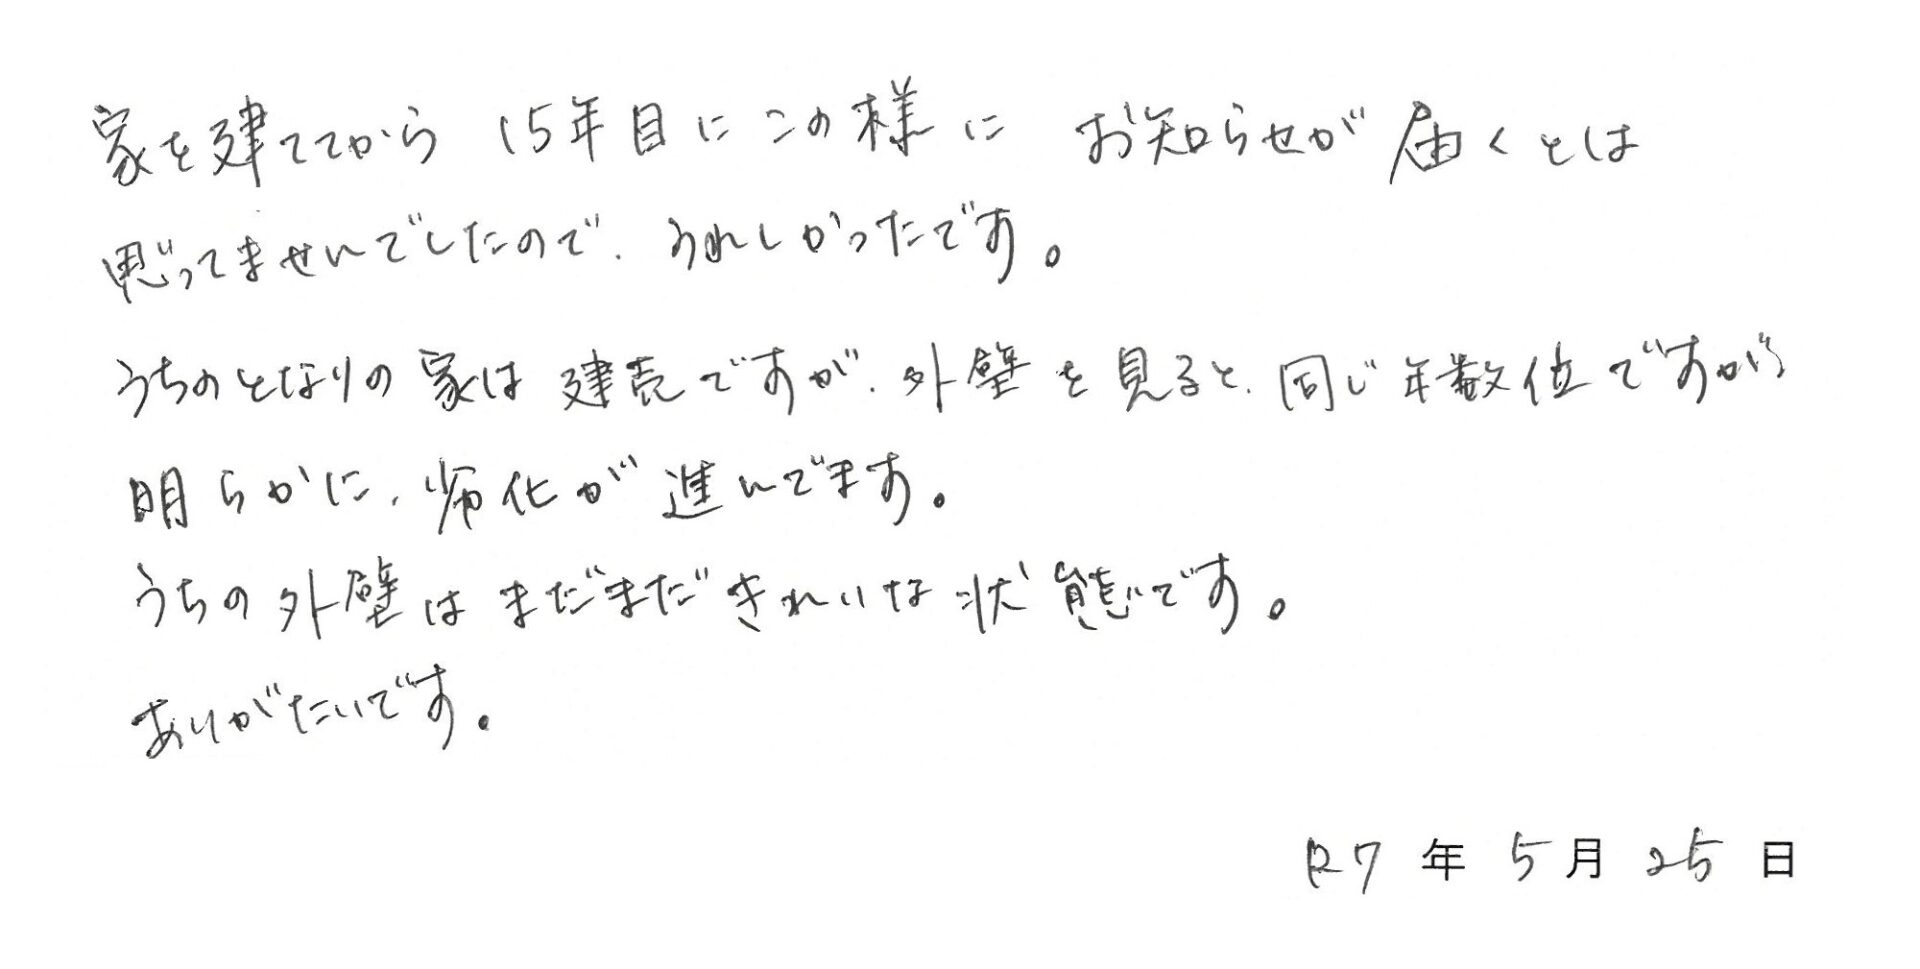 家を建ててから 15年目にこの様に お知らせが届くとは
思ってませんでしたので、うれしかったです。
うちのとなりの家は建売ですが、外壁を見ると、同じ年数位ですが
明らかに、劣化が進んでます。
うちの外壁はまだまだきれいな状態です。
ありがたいです。
R7年5月25日